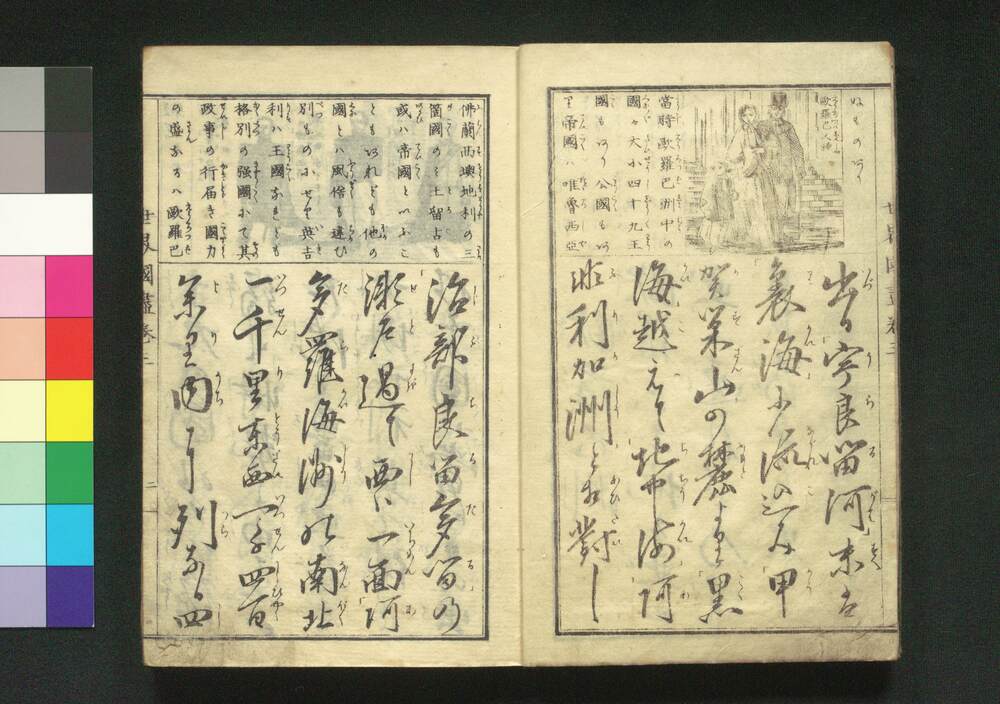 歐羅巴人種
當時歐羅巴洲中の
國々大小四十九王
國もあり公國もあ
り帝國ハ唯魯西亞
出る宇良留河末は
裏海に流込み甲
賀栄山の麓より黒
海越えて地中海阿
非利加洲と相對し
世界國盡 卷三
佛蘭西墺地利の三
箇國のミ土留古も
或ハ帝國といふこ
ともあれども他の
國とハ風俗も違ひ
別ものにせり英吉
利ハ王國なれども
格別の強國にて其
政事の行届き國力
の盛なるハ歐羅巴
治部良留多留の
瀬戸過て西は一面阿
多羅海洲の南北
一千里東西一千四百
余里内に列なる四
世界國盡 卷三
二